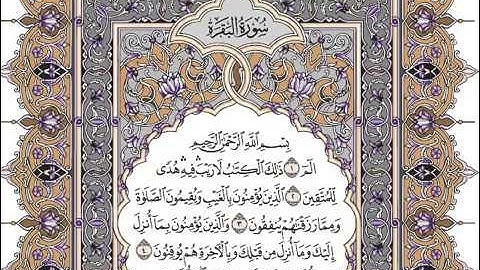 سُورَةُ البَقَرَةِ
بِسْمِ اللَّهِ الرَّحْمَٰنِ الرَّحِيمِ
الٓمٓ ١ ذَٰلِكَ الْكِتَٰبُ لَا رَيْبَ ۛ فِيهِ ۛ هُدًى
لِّلْمُتَّقِينَ ٢ الَّذِينَ يُؤْمِنُونَ بِالْغَيْبِ وَيُقِيمُونَ الصَّلَوٰةَ
وَمِمَّا رَزَقْنَٰهُمْ يُنفِقُونَ ٣ وَالَّذِينَ يُؤْمِنُونَ بِمَا أُنزِلَ
إِلَيْكَ وَمَا أُنزِلَ مِن قَبْلِكَ وَبِالْآخِرَةِ هُمْ يُوقِنُونَ ٤